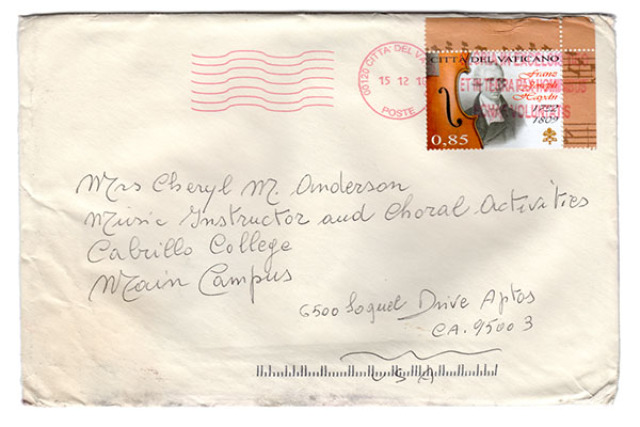 00120 CITTA' DEL VA
15 12 10
POSTE
CITTÀ DEL VATICANO
Franz
Joseph
Haydn
1732
1809
0,85
Mrs Cheryl M. Anderson
Music Instructor and Choral Activities
Cabrillo College
Main Campus
6500 Soquel Drive Aptos
CA. 95003
USA